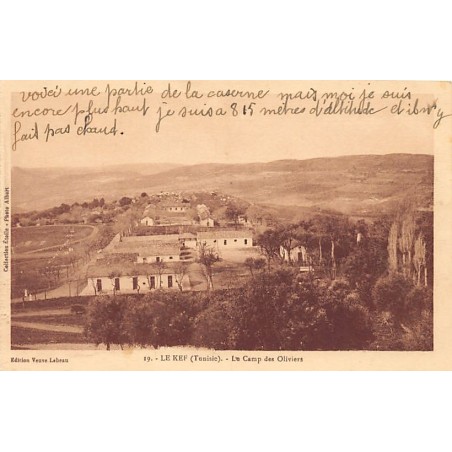 voici une partie de la caserne mais moi je suis
encore plus haut je suis a 815 mètres d'altitude et il n'y
fait pas chaud.
Collection Étoile - Photo Albert
Edition Veuve Labeau
19. - LE KEF (Tunisie). - Le Camp des Oliviers